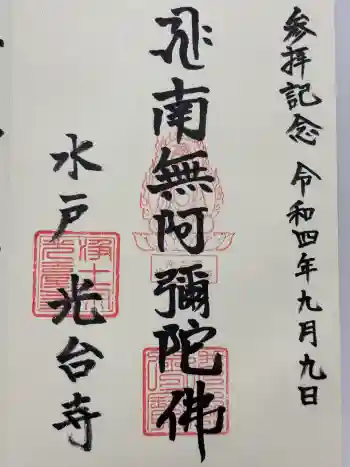 参拝記念 令和四年九月九日
南無阿彌陀佛
水戸 光台寺